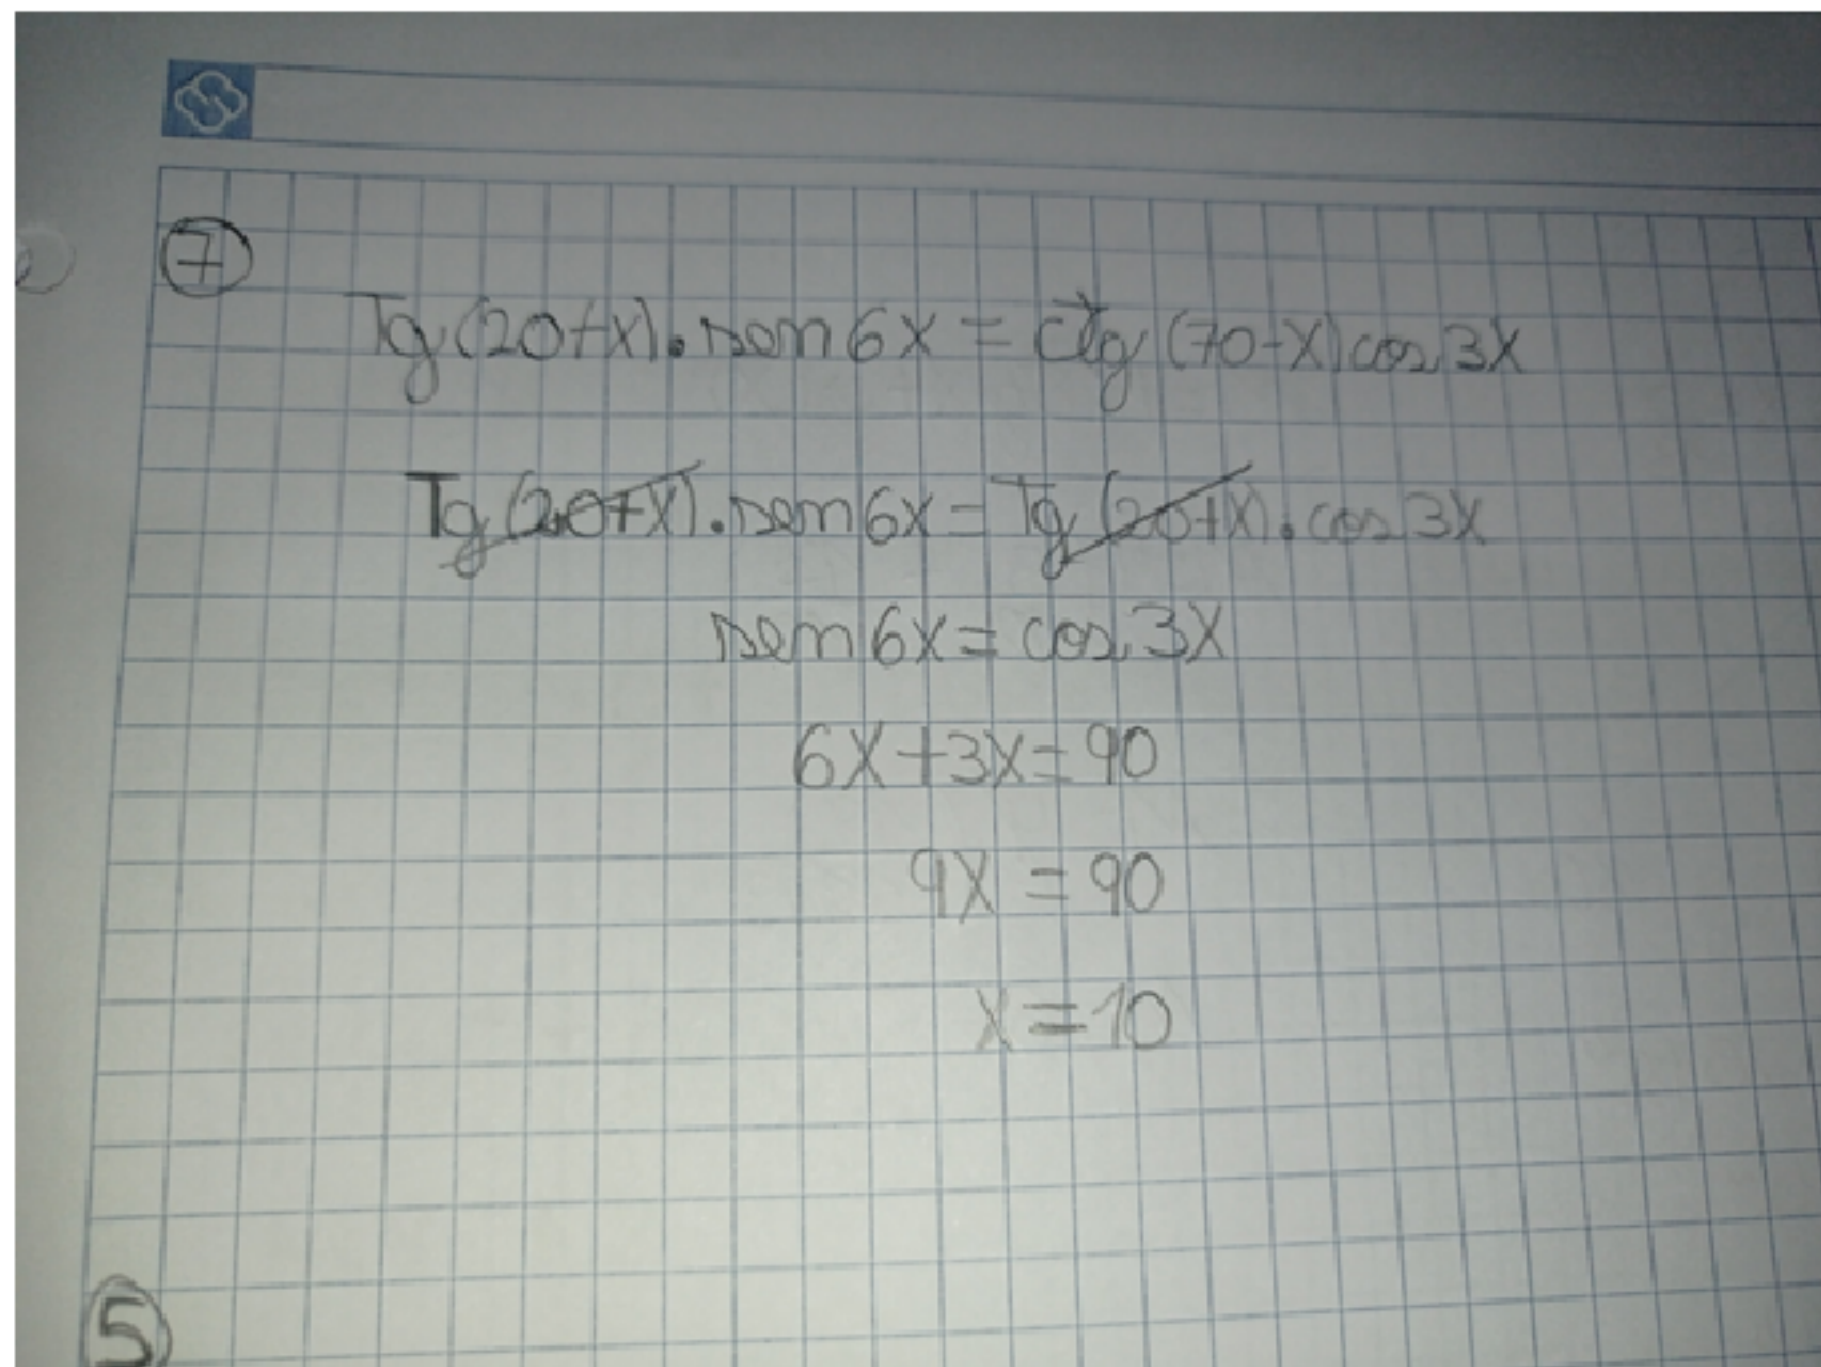 7
Tg(20+x).sen6x = ctg(70-x)cos3x
Tg(20+x).sen6x = Tg(20+x).cos3x
sen6x = cos3x
6x+3x=90
9x = 90
x = 10
5